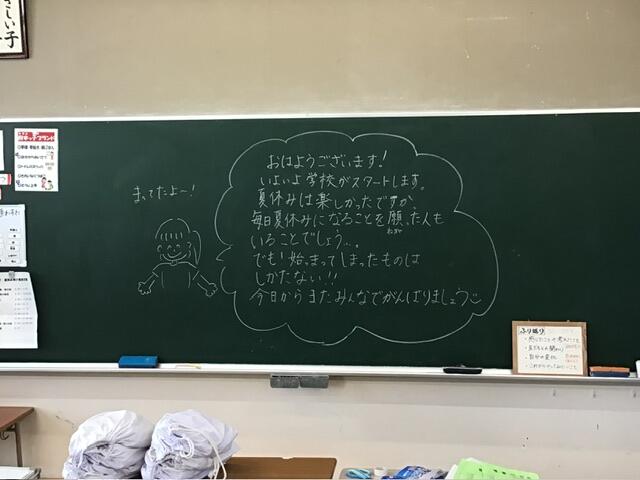 さしい子
まってたよ〜!
おはようございます!
いよいよ学校がスタートします。
夏休みは楽しかったですか。
毎日夏休みになることを願った人も
ねが
いることでしょう…。
でも!始まってしまったものは
しかたない!!
今日からまたみんなでがんばりましょう
ふり返り
・感じたことや考えたこと
・友だちとの関わり
・自分の変化